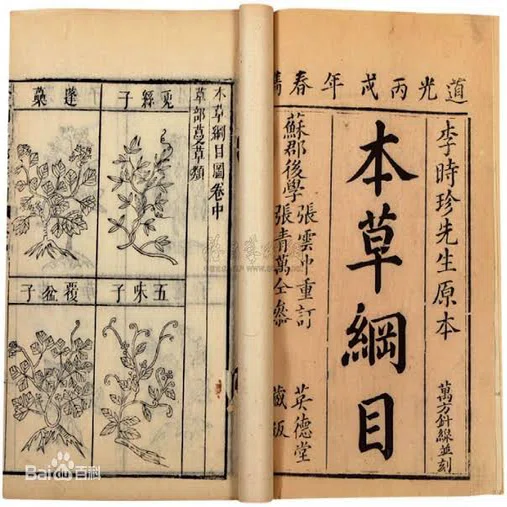 道光丙戌年春
李時珍先生原本
萬方針線並刻
本草綱目
蘇郡後學
張雲中重訂
張青萬全參
英德堂
藏版
本草綱目圖卷中
草部蔓草類
兎絲子
蓬蘽
五味子
覆盆子
Bai百科